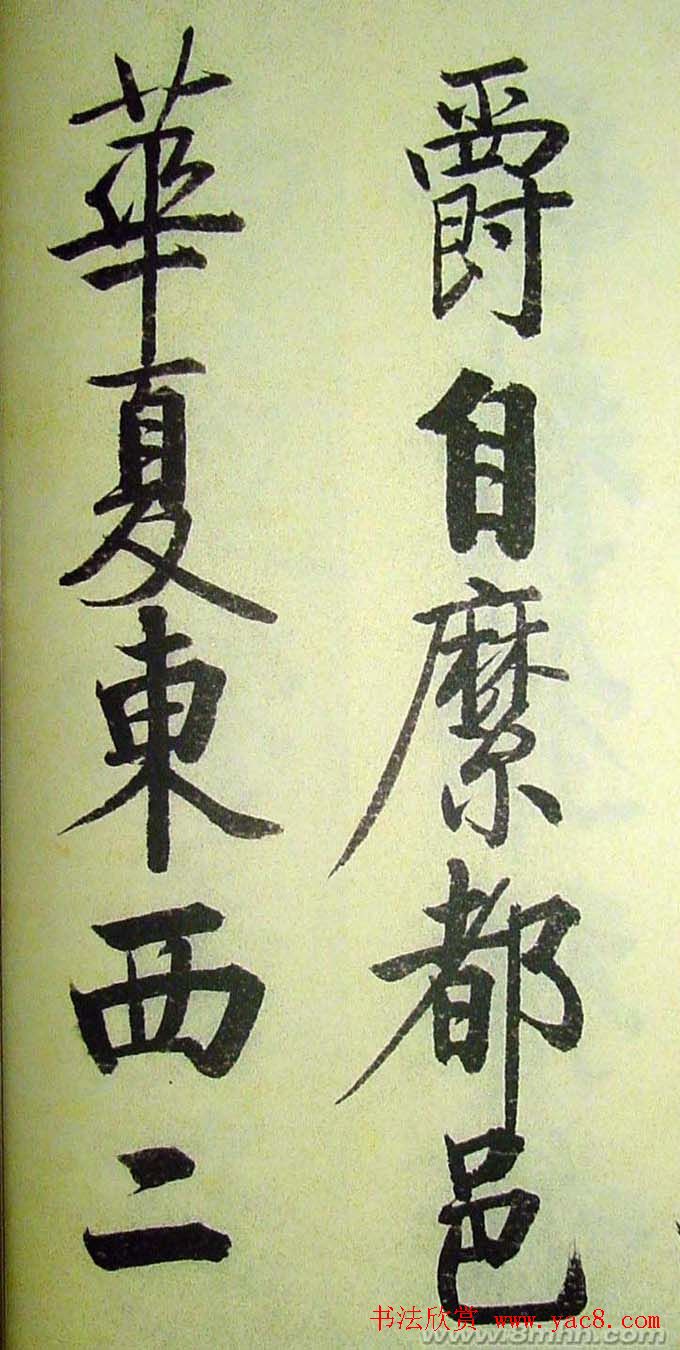 爵自縻都邑
華夏東西二
书法欣赏 www.yac8.com
www.8mhh.com